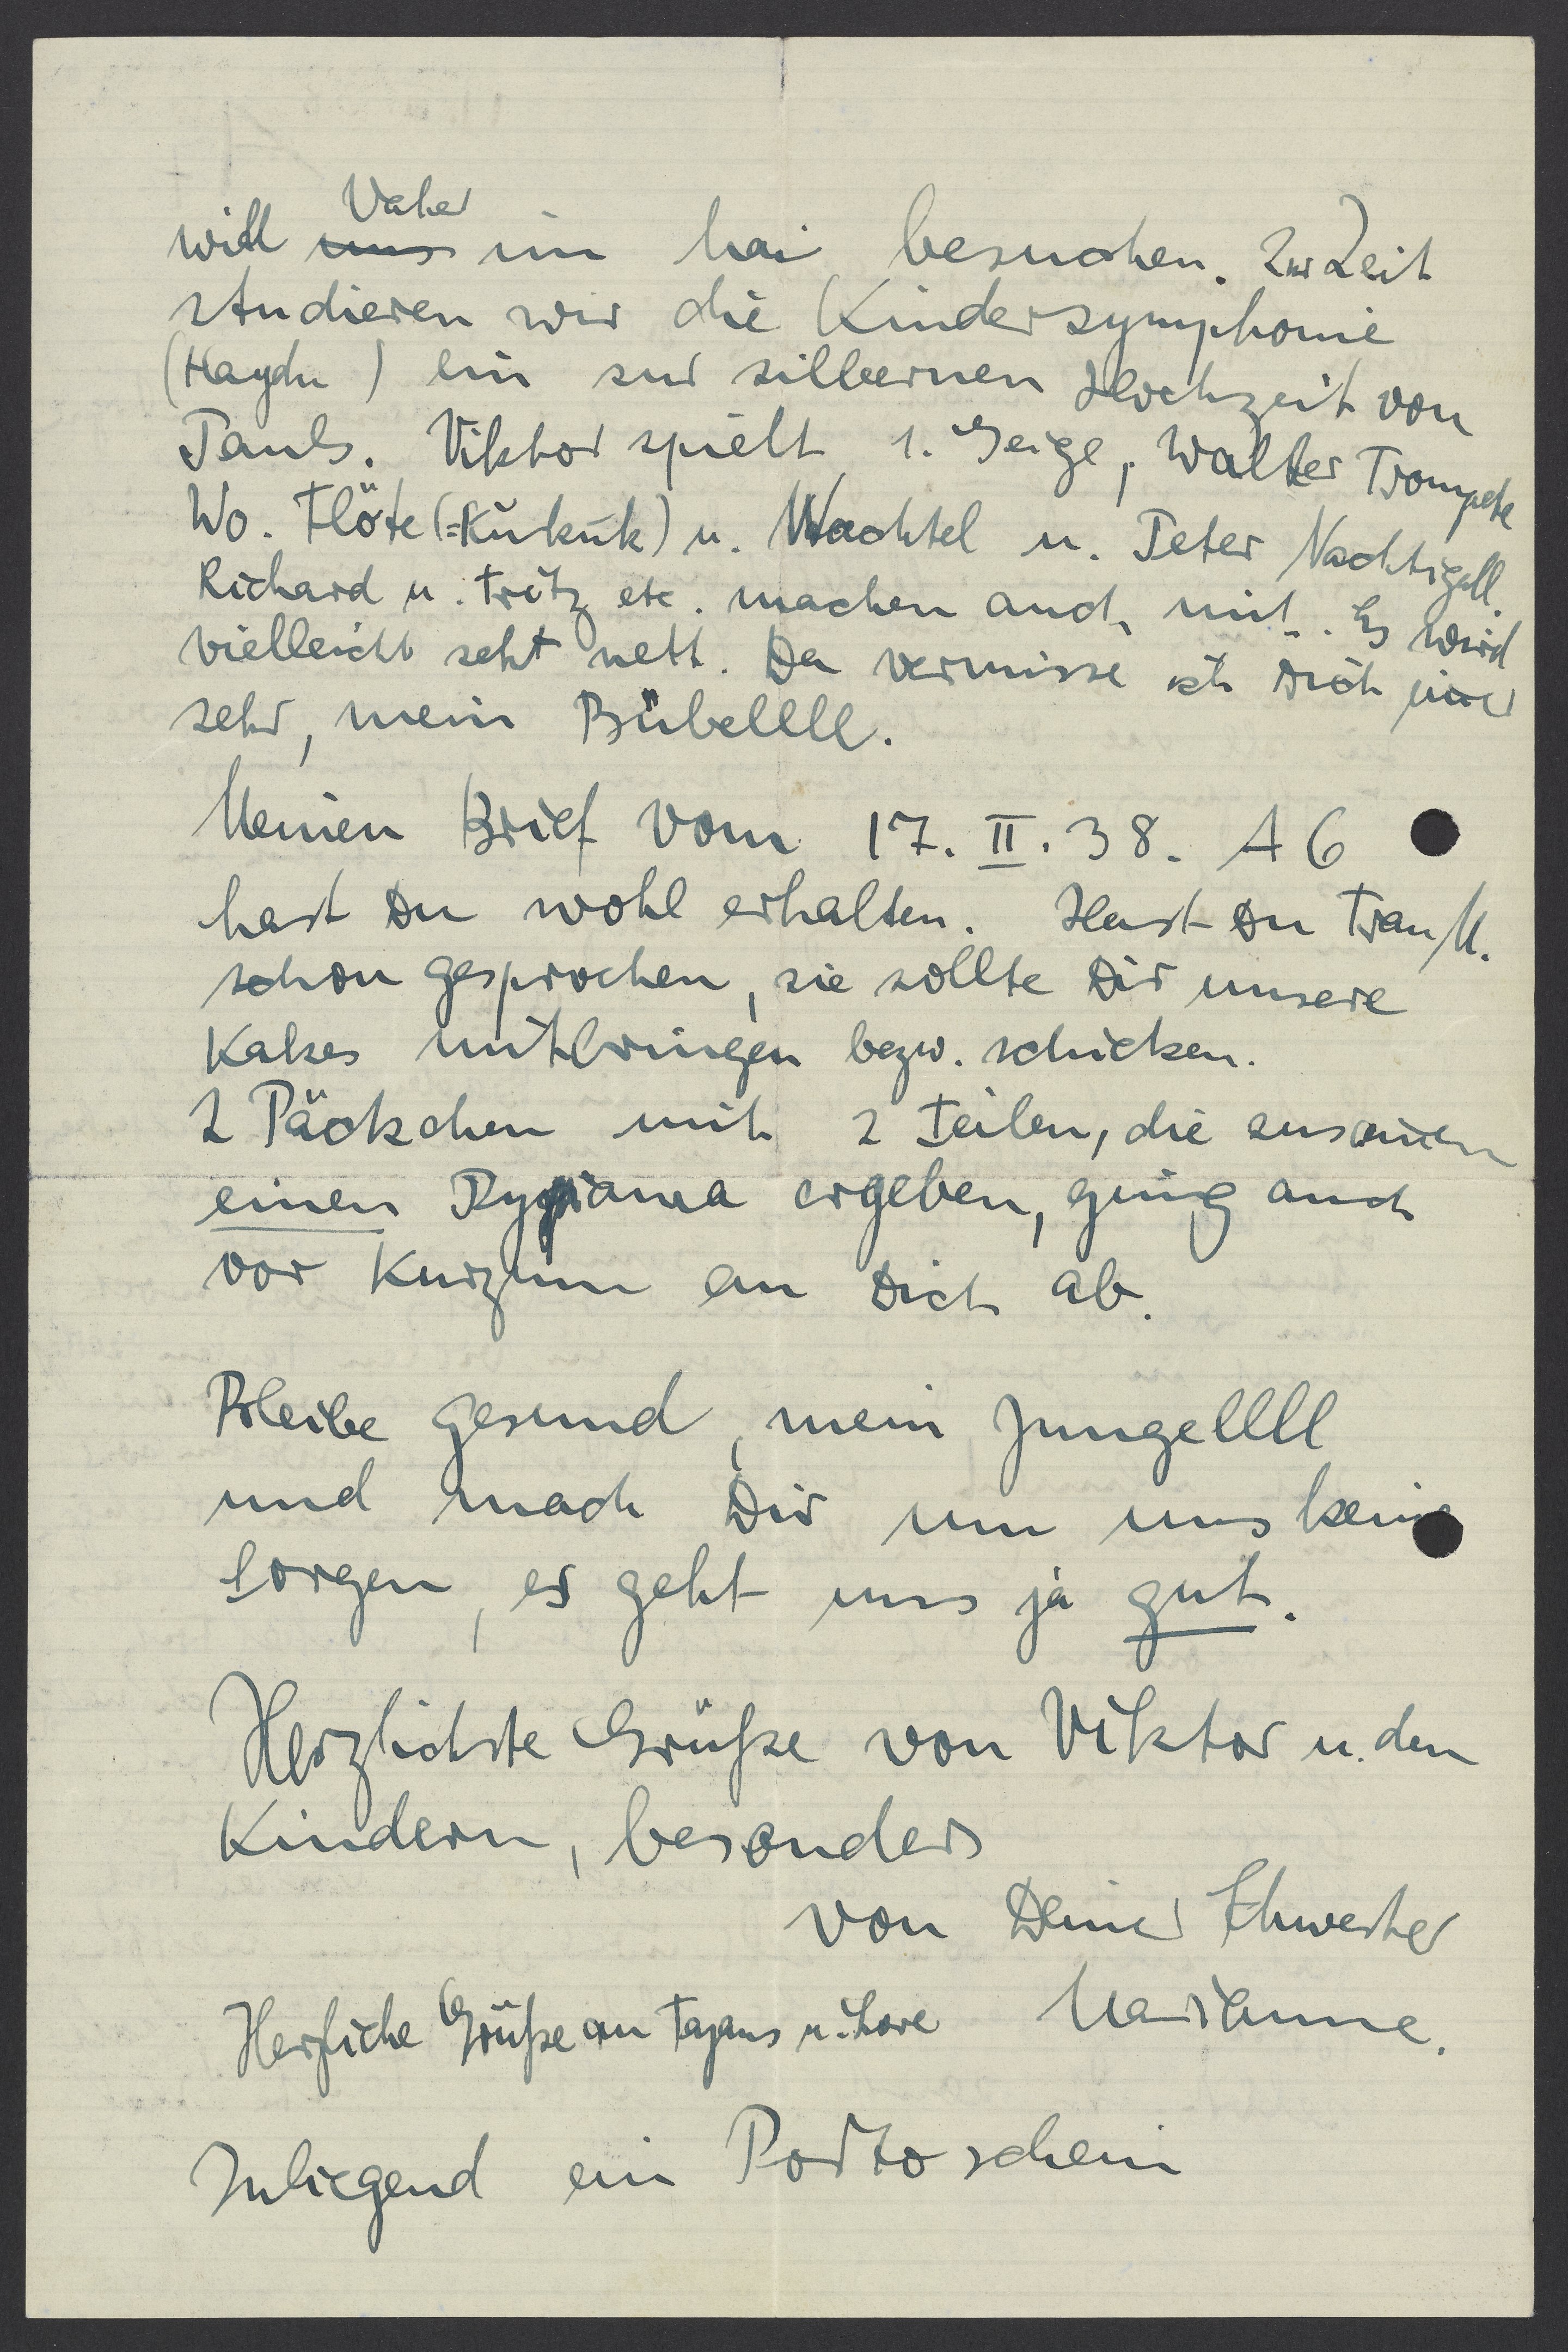 Vater
will uns im Mai besuchen. Zur Zeit
studieren wir die Kindersymphonie
(Haydn) ein zur silbernen Hochzeit von
Pauls. Viktor spielt 1. Geige, Walter Trompete
Wo. Flöte (=Kukuk) u. Wachtel u. Peter Nachtigall.
Richard u. Fritz etc. machen auch mit. Es wird
vielleicht seht nett. Da vermisse ich Dich
sehr, mein Bübellll.
Meinen Brief vom 17. II. 38. A 6
hast Du wohl erhalten. Hast Du Frau M.
schon gesprochen, sie sollte Dir unsere
Kakes mitbringen bezw. schicken.
2 Päckchen mit 2 Teilen, die zusammen
einen Pyjiama ergeben, ging auch
vor Kurzum an Dich ab.
Bleibe gesund, mein Jungellll
und mach Dir um uns keine
Sorgen, es geht uns ja gut.
Herzlichste Grüße von Viktor u. den
Kindern, besonders
von Deiner Schwester
Marianne.
Herzliche Grüße an Tajans u. Lore
Inliegend ein Portoschein